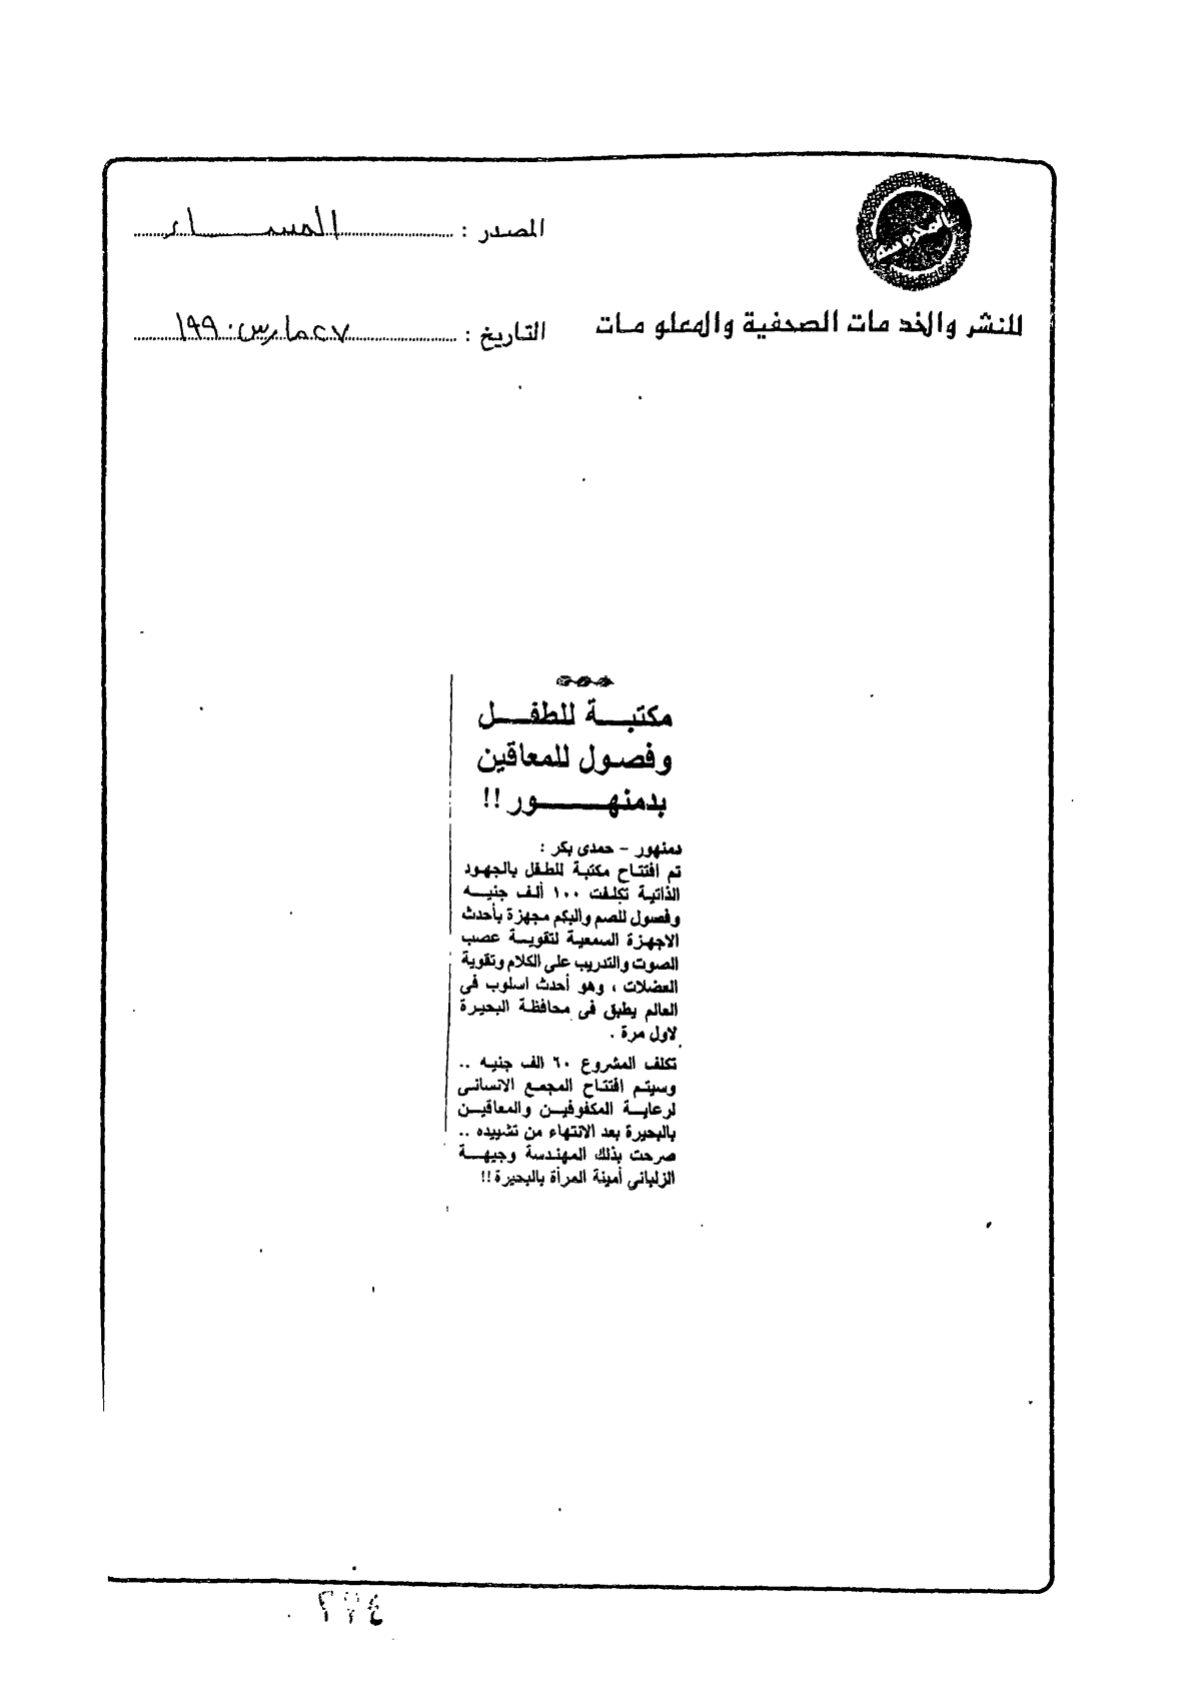 المحروسة
للنشر والخدمات الصحفية والمعلومات
المصدر : المساء
التاريخ : ٢٧ مارس ١٩٩٠
مكتبة للطفل
وفصول للمعاقين
بدمنهور !!
دمنهور – حمدى بكر :
تم افتتاح مكتبة للطفل بالجهود
الذاتية تكلفت ١٠٠ ألف جنيه
وفصول للصم والبكم مجهزة بأحدث
الاجهزة السمعية لتقوية عصب
الصوت والتدريب على الكلام وتقوية
العضلات ، وهو أحدث اسلوب فى
العالم يطبق فى محافظة البحيرة
لاول مرة .
تكلف المشروع ٦٠ الف جنيه ..
وسيتم افتتاح المجمع الانسانى
لرعاية المكفوفين والمعاقين
بالبحيرة بعد الانتهاء من تشييده ..
صرحت بذلك المهندسة وجيهة
الزلبانى أمينة المرأة بالبحيرة !!